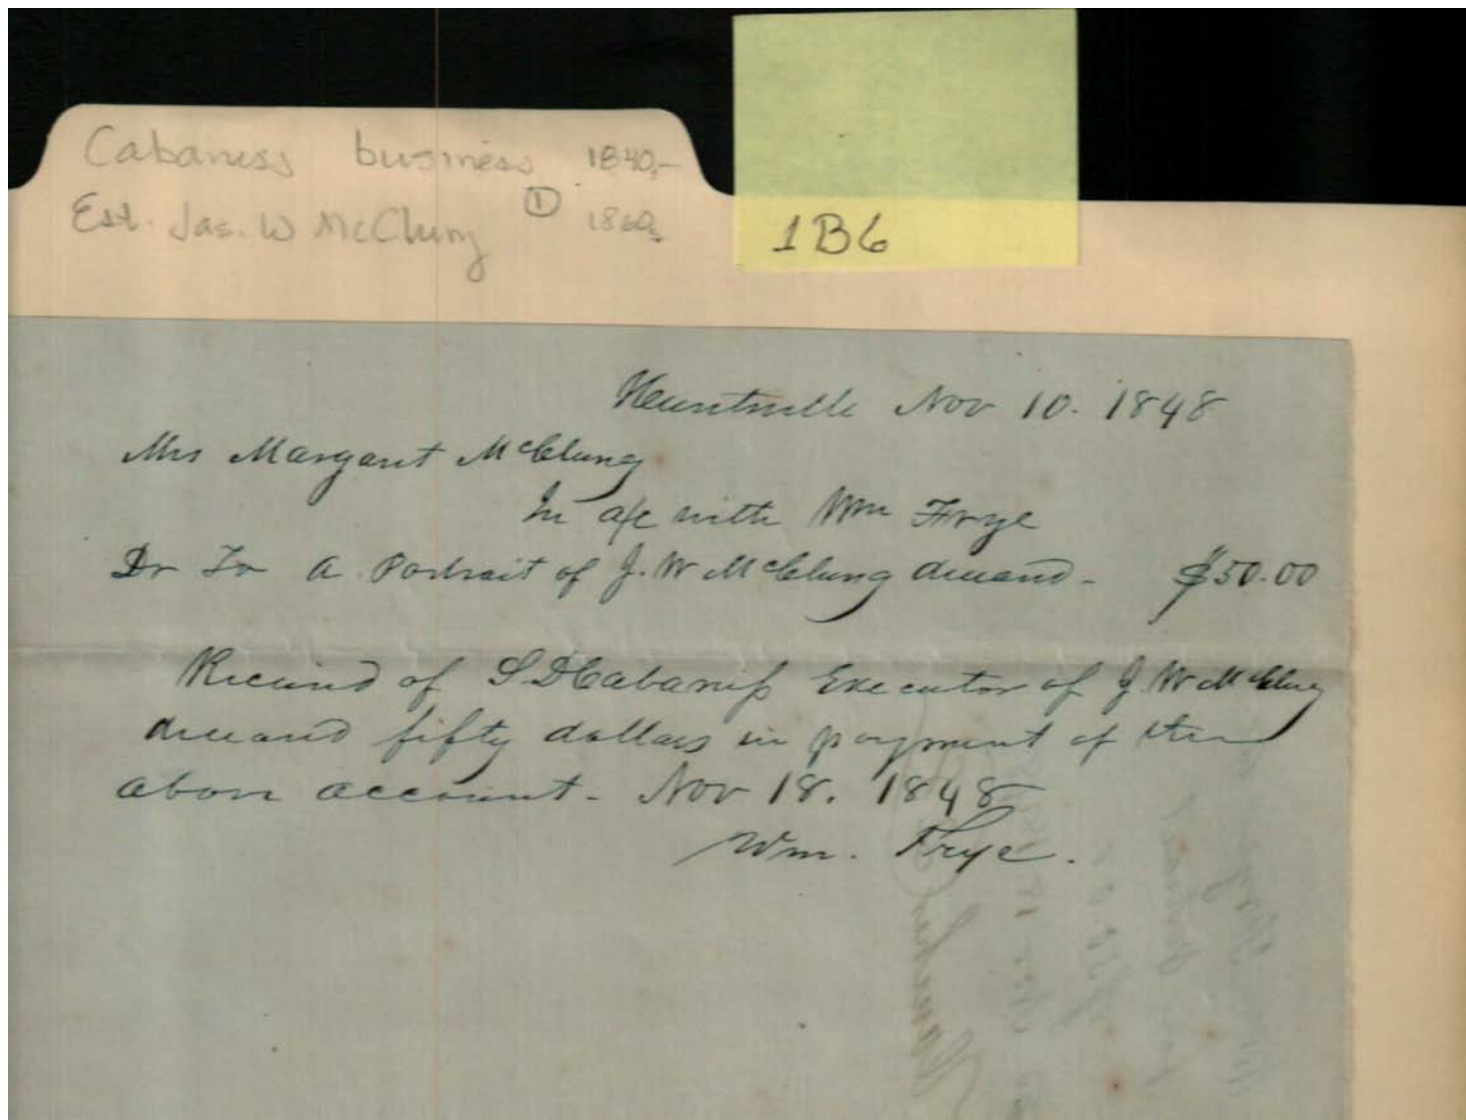 Cabaness business 1840,-
Est. Jas. W McClung ① 1860,
1B6
Huntsville Nov 10. 1848
Mrs Margaret McClung
In a/c with Wm Frye
Dr To A Portrait of J. W McClung deceasd - $50.00
Received of S D Cabaniss Executor of J. W McClung
deceasd fifty dollars in payment of the
above account - Nov 18. 1848
Wm. Frye.